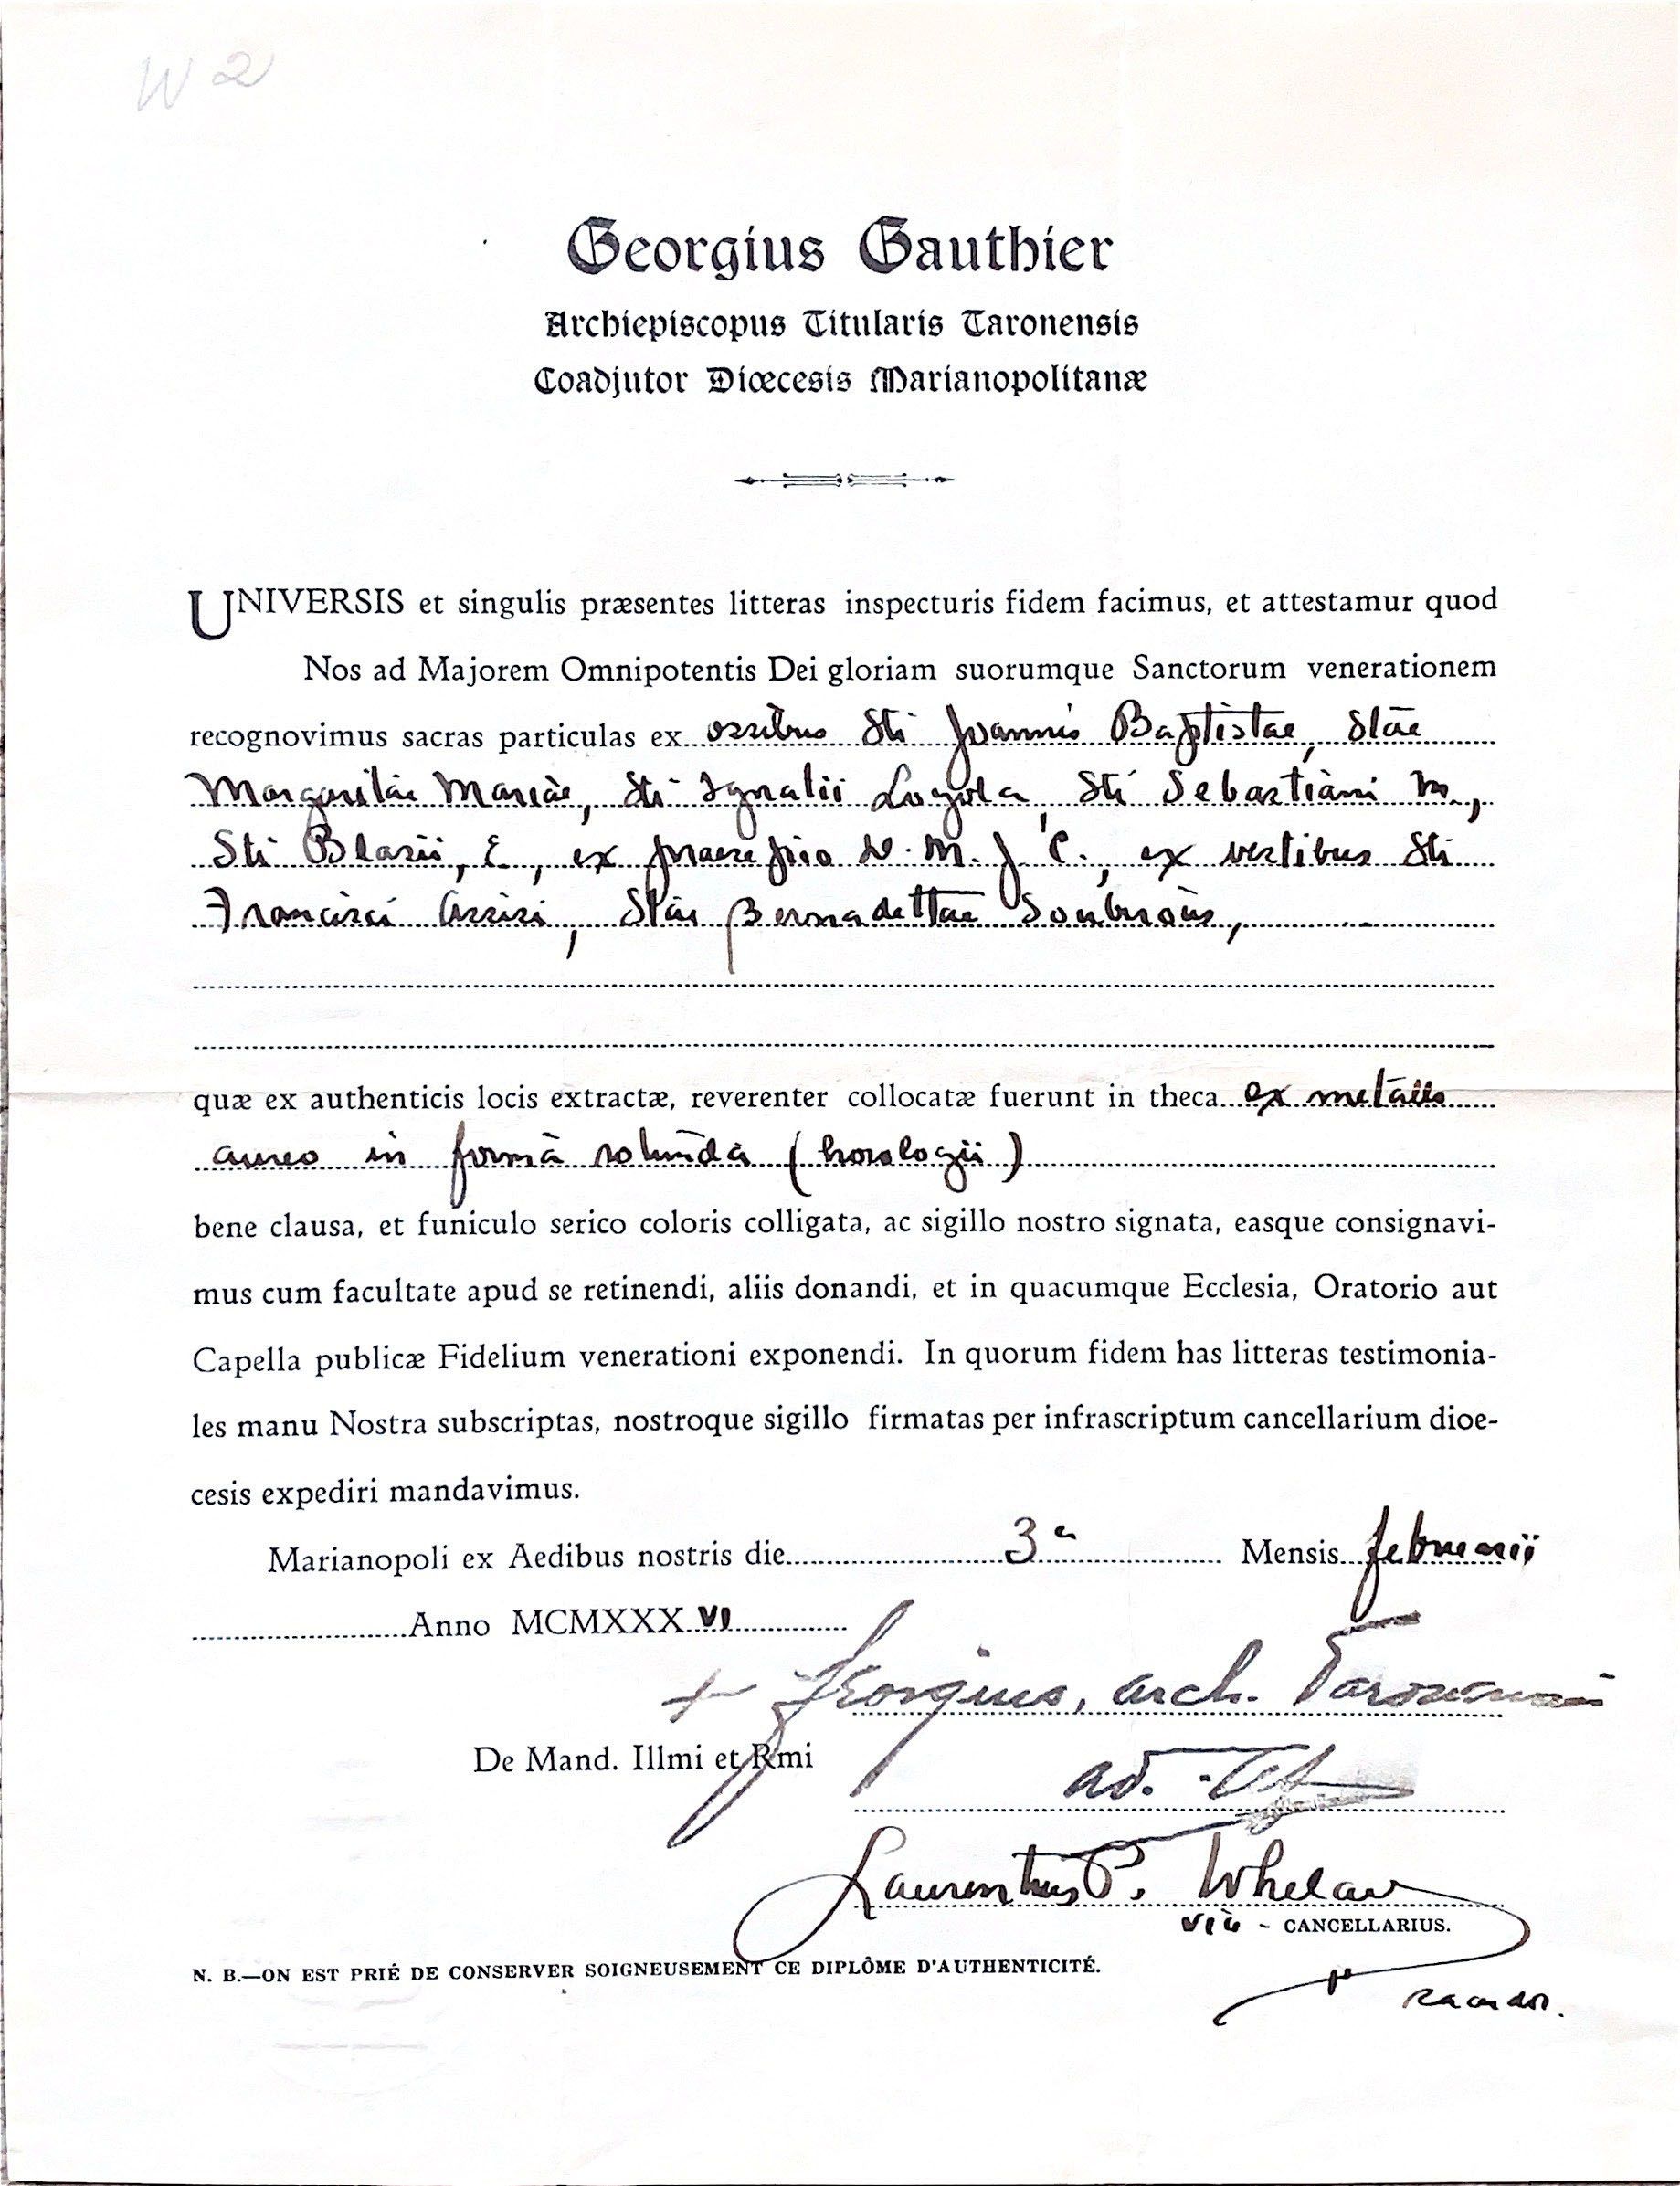 W 2
Georgius Gauthier
Archiepiscopus Titularis Taronensis
Coadjutor Diœcesis Marianopolitanæ
UNIVERSIS et singulis præsentes litteras inspecturis fidem facimus, et attestamur quod
Nos ad Majorem Omnipotentis Dei gloriam suorumque Sanctorum venerationem
recognovimus sacras particulas ex ossibus Sti Joannis Baptistae, Stae
Margaritae Mariae, Sti Ignatii Loyola, Sti Sebastiani M.,
Sti Blasii, E., ex praesepio D. N. J. C., ex vestibus Sti
Francisci Assisi, Stae Bernadettae Soubirous,
quæ ex authenticis locis extractæ, reverenter collocatæ fuerunt in theca ex metallo
aureo in forma rotunda (horologii)
bene clausa, et funiculo serico coloris colligata, ac sigillo nostro signata, easque consignavi-
mus cum facultate apud se retinendi, aliis donandi, et in quacumque Ecclesia, Oratorio aut
Capella publicæ Fidelium venerationi exponendi. In quorum fidem has litteras testimonia-
les manu Nostra subscriptas, nostroque sigillo firmatas per infrascriptum cancellarium dioe-
cesis expediri mandavimus.
Marianopoli ex Aedibus nostris die 3a Mensis februarii
Anno MCMXXX VI
+ Georgius, arch. Taronensis
De Mand. Illmi et Rmi
ad.
Laurentius P. Whelan
vice - CANCELLARIUS.
N. B.—ON EST PRIÉ DE CONSERVER SOIGNEUSEMENT CE DIPLÔME D'AUTHENTICITÉ.